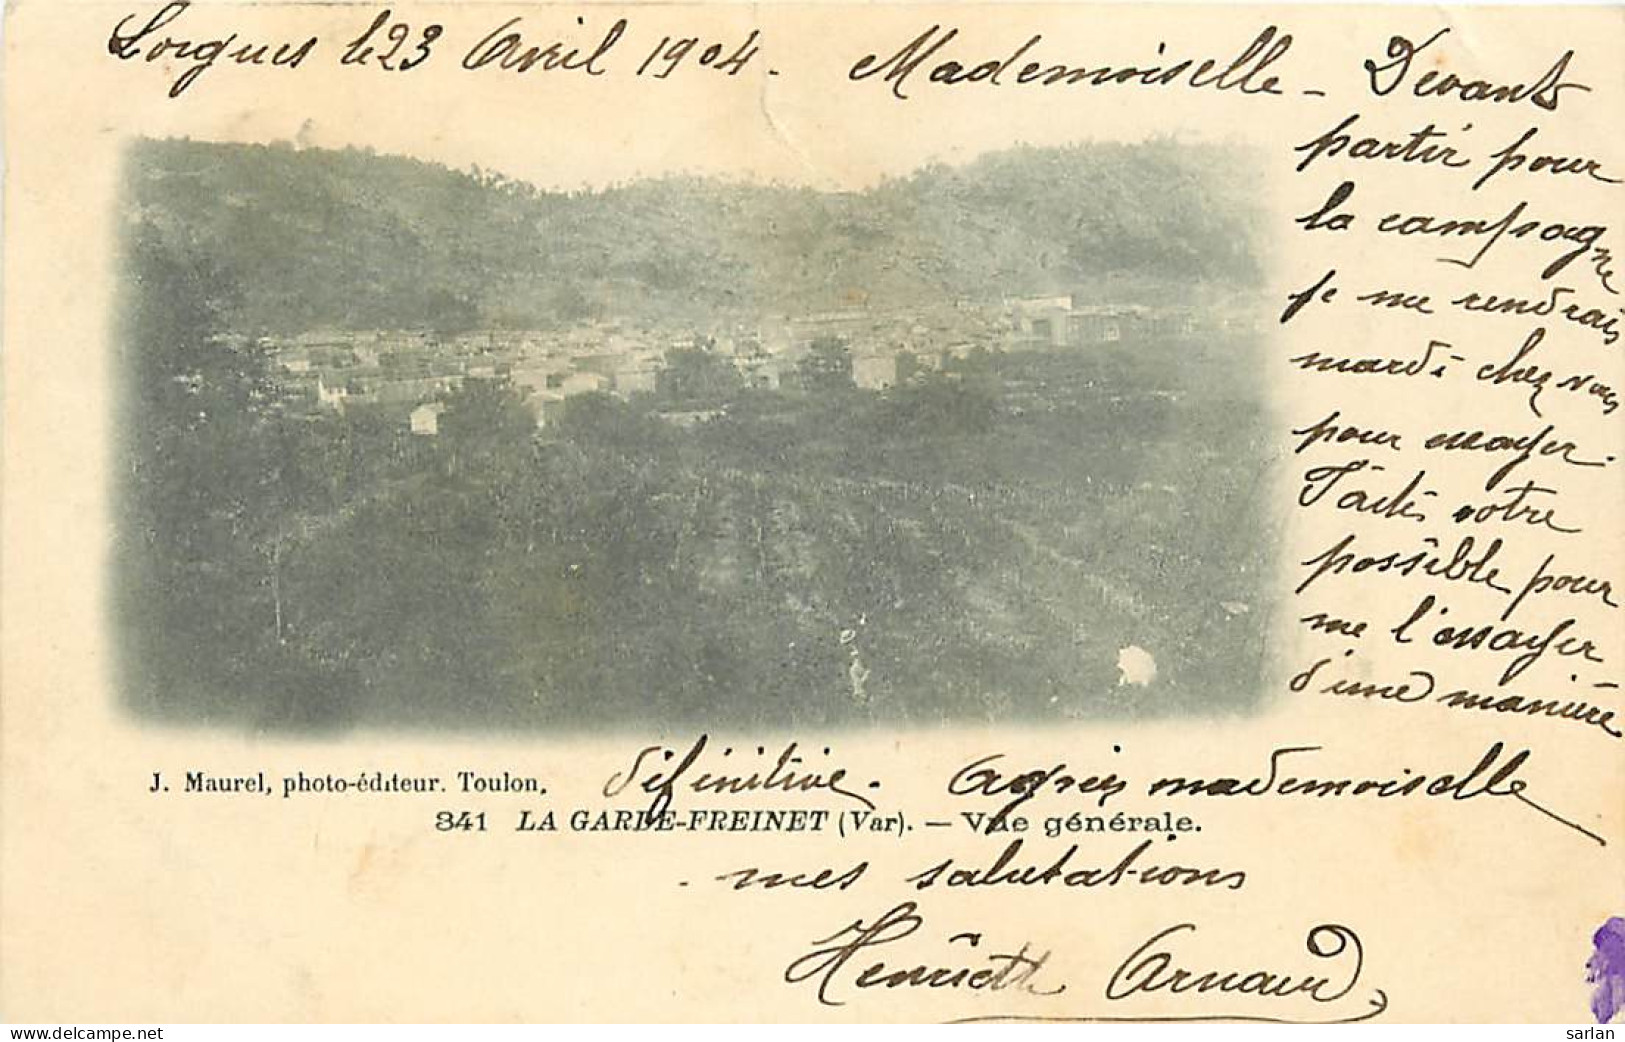 Lorgues le 23 Avril 1904. Mademoiselle - Devant
partir pour
la campagne
je me rendrais
mardi chez vous
pour essayer.
Faites votre
possible pour
me l'essayer
d'une manière
définitive. Agréez mademoiselle
J. Maurel, photo-éditeur. Toulon.
341 LA GARDE-FREINET (Var). — Vue générale.
mes salutations
Henriette Arnaud
delcampe.net
sarlan